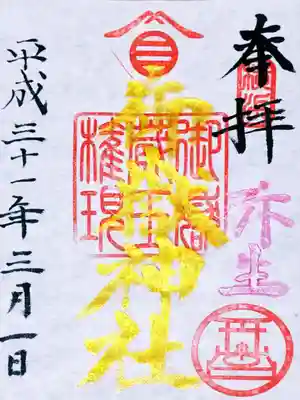 奉拝
弥生
御嶽
蔵王
権現
神社
平成三十一年三月一日